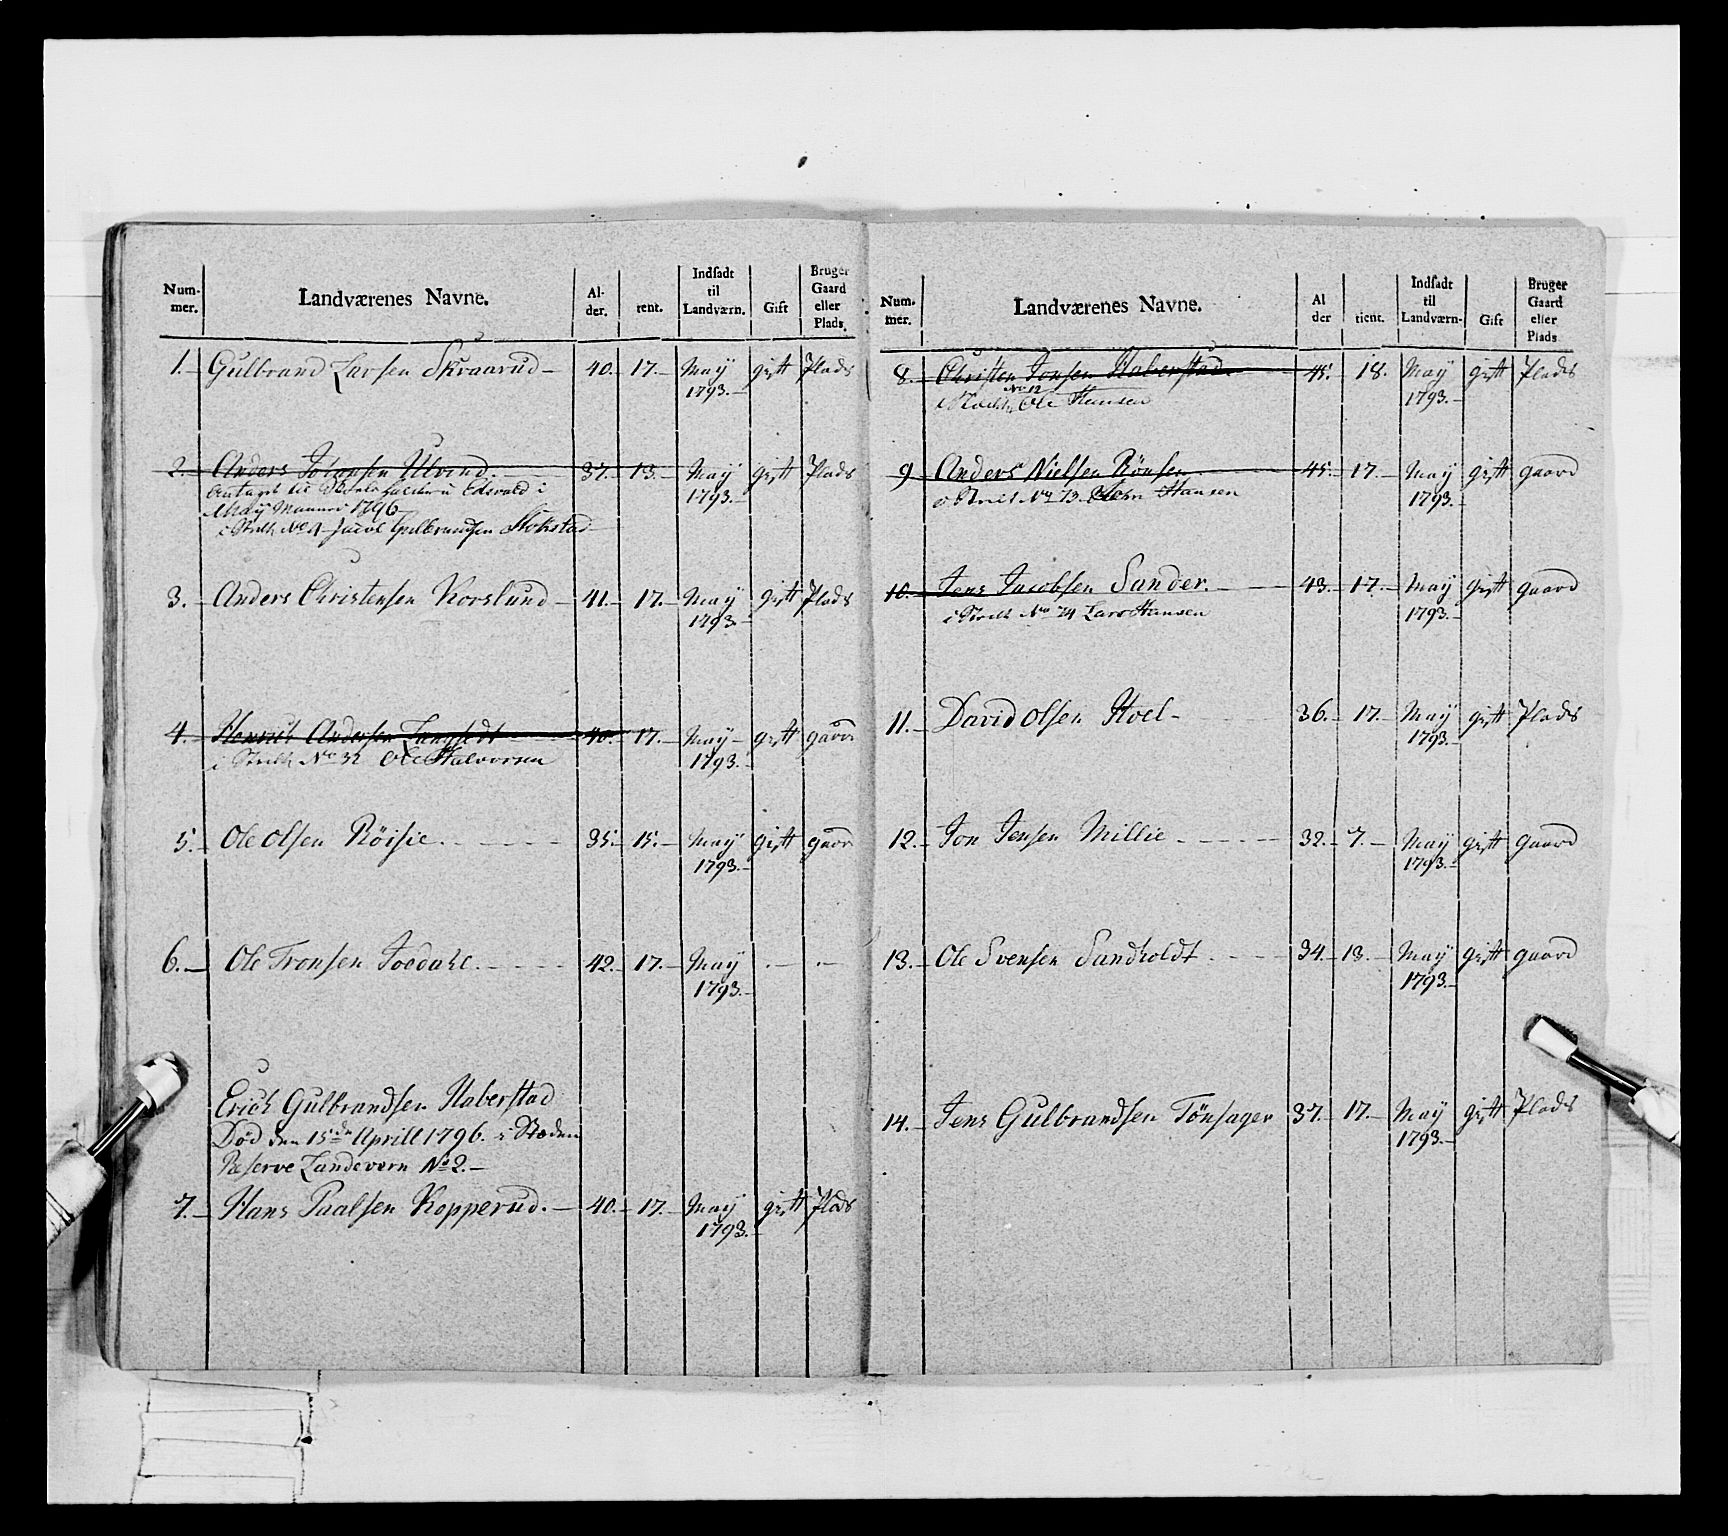 Num-
mer.
Landværenes Navne.
Al-
der.
tient.
Indsadt
til
Landværn.
Gift
Bruger
Gaard
eller
Plads.
1. Gulbrand Larsen Skraarud 40. 17. May gift Plads
1793.
2. Anders Johansen Ulvind 37. 13. May gift Plads
Antaget til Eidsvold i 1793.
May Maaned 1796
i Stedt No 4 Gulbrandsen Stokstad
3. Anders Christensen Korslund 41. 17. May gift Plads
1793.
4. Henrich Andersen Langsedt 40. 17. May gift gaard
i Stedt No 32 Ole Halvorsen 1793.
5. Ole Olsen Röisie. 35. 15. May gift gaard
1793.
6. Ole Tronsen Joedahl. 42. 17. May
1793.
Erich Gulbrandsen Haberstad
Död den 15de Aprill 1796. i Steden
Reserve Landevern No 2.
7. Hans Paalsen Kopperud. 40. 17. May gift Plads
1793.
Num.
mer.
Landværenes Navne.
Al
der
tient.
Indsadt
til
Landværn-
Gift
Bruger
Gaard
eller
Plads
8. Christen Jonsen Haberstad 45. 18. May gift Plads
No 12
i Stedt Ole Hansen 1793.
9 Anders Nielsen Rönsen 45. 17. May gift gaard
i Stedt No 73. Hansen 1793.
10. Jens Jacobsen Sander. 43. 17. May gift gaard
i Stedt No 74 Lars Hansen 1793.
11. David Olsen Hoel 36. 17. May gift Plads
1793.
12. Jon Jensen Millie 32. 7. May gift gaard
1793.
13. Ole Svensen Sandholdt 34. 13. May gift gaard
1793.
14. Jens Gulbrandsen Tönsager 37. 17. May gift Plads
1793.